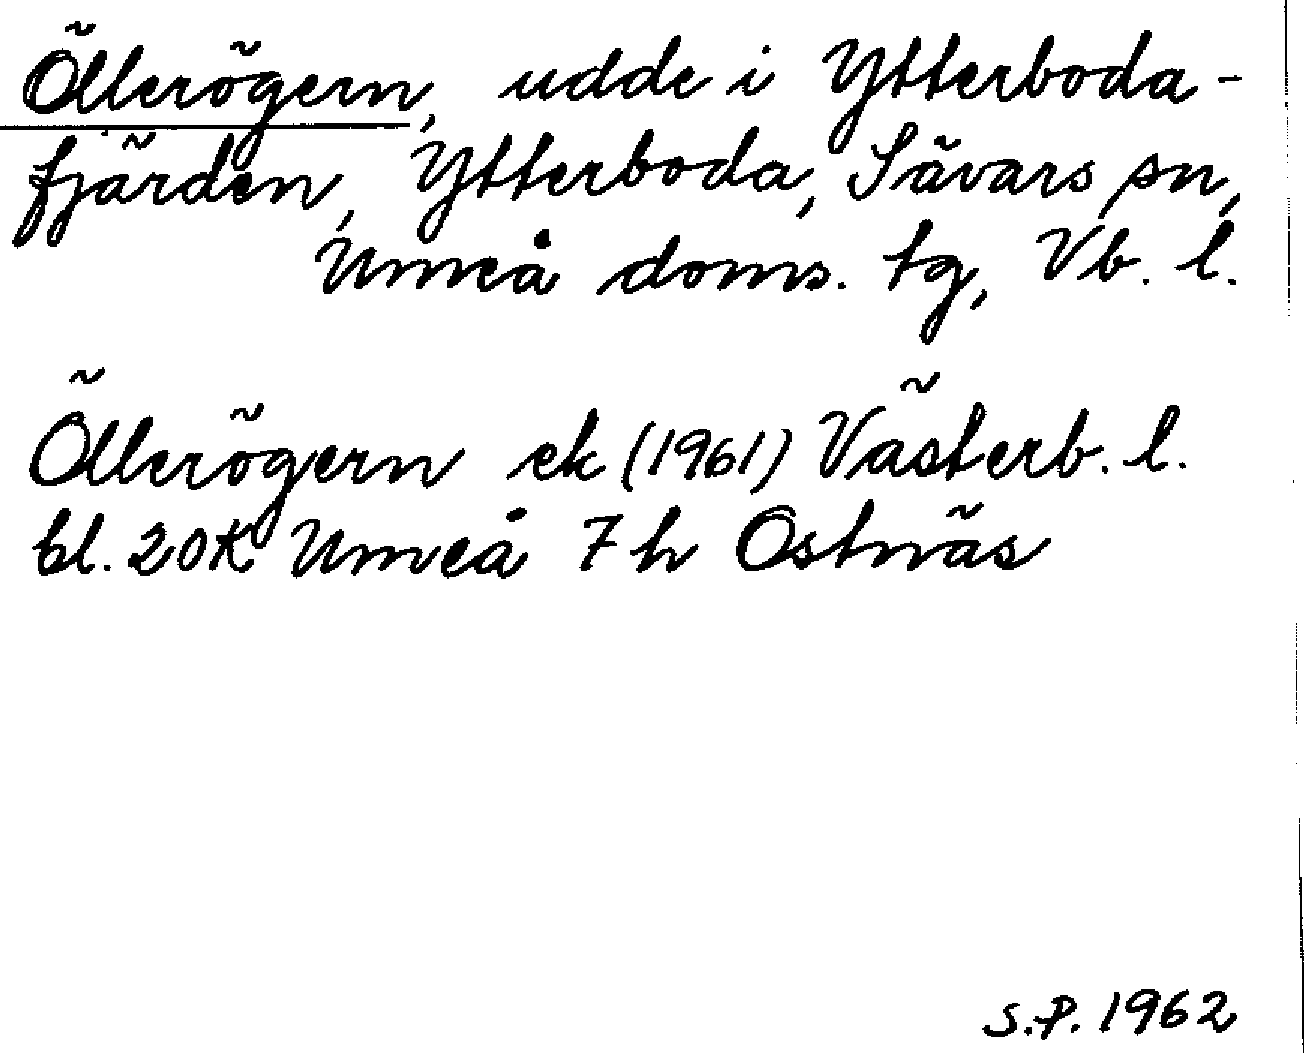 Öllerögern, udde i Ytterboda-
fjärden, Ytterboda, Sävars sn,
Umeå doms. tg, Vb. l.
Öllerögern ek (1961) Västerb. l.
bl. 20K Umeå 7 h Ostnäs
S.P. 1962